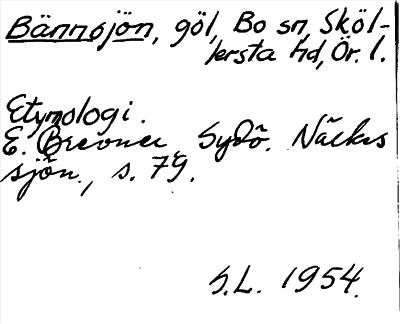 Bännsjön, göl, Bo sn, Sköl-
lersta hd, Ör. l.
Etymologi.
E. Brevner, Sydö. Närkes
sjön., s. 79.
S.L. 1954.